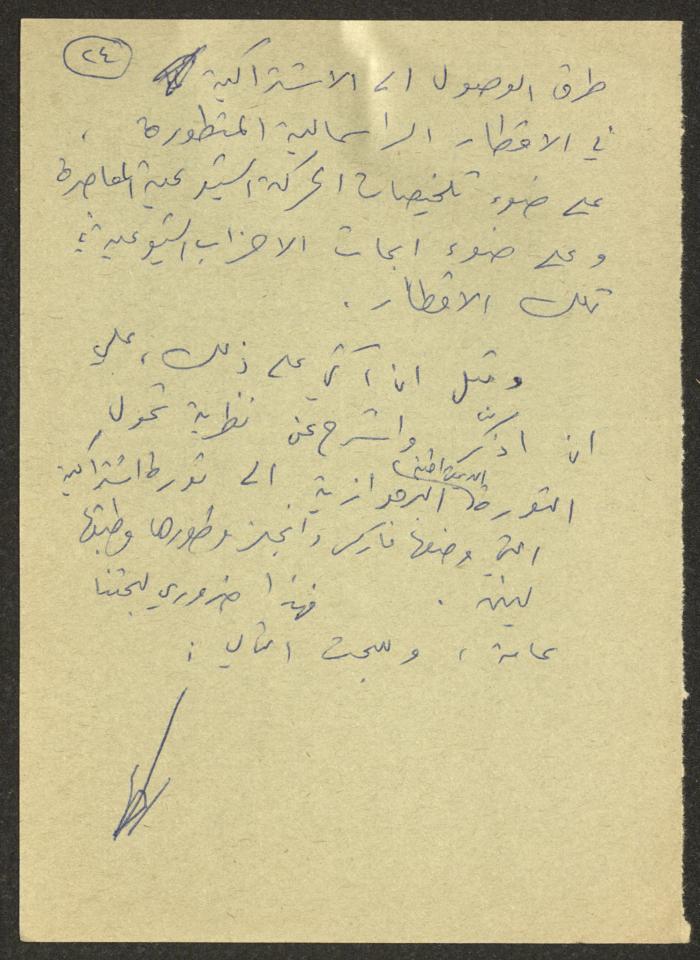 ٢٤
طرق الوصول الى الاشتراكية
في الاقطار الراسمالية المتطورة ،
على ضوء تلخيصات الحركة الشيوعية المعاصرة
وعلى ضوء ابحاث الاحزاب الشيوعية في
تلك الاقطار .
وقبل ان آتي على ذلك ، علي
ان اذكر واشرح عن نظرية تحول
الثورة الديمقراطية البرجوازية الى ثورة اشتراكية
التي وضعها ماركس وانجلز وطورها وطبقها
لينين . فهذا ضروري لبحثنا
عامة ، وللبحث التالي :